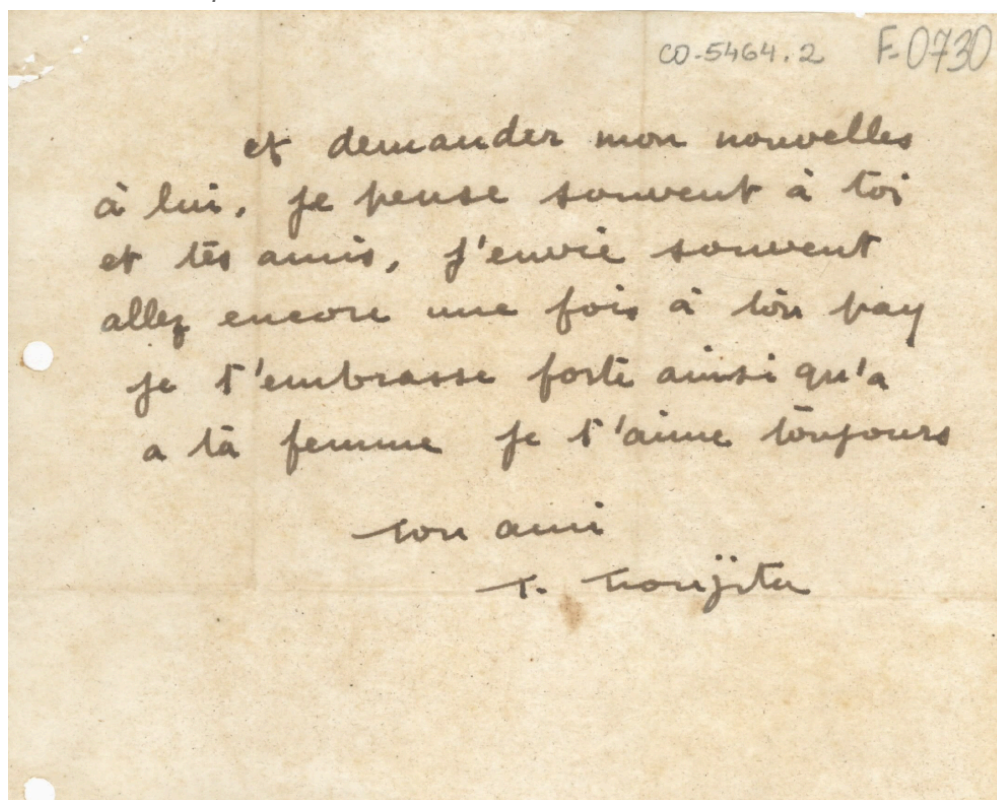 CO-5464.2 F-0730
et demander mon nouvelles
à lui. je pense souvent à toi
et tes amis, j'envie souvent
allez encore une fois à ton pay
je t'embrasse forte ainsi qu'a
a ta femme je t'aime toujours
ton ami
T. Foujita